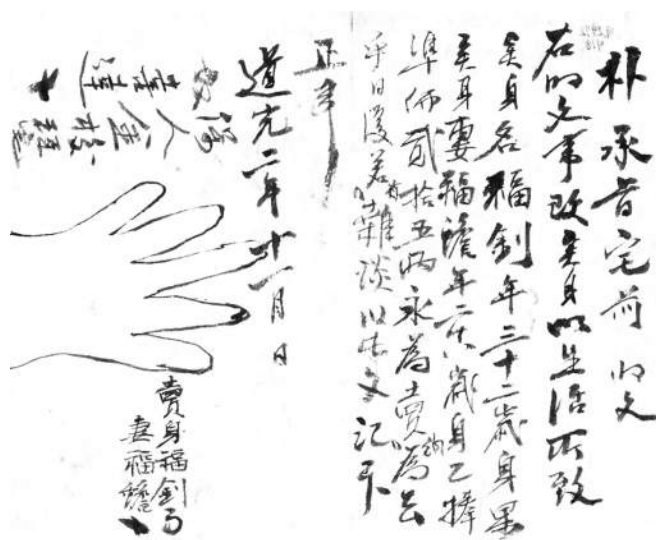 朴承旨宅前明文
右明文事段矣身以生活所致
矣身名福釗年三十二歲身果
矣身妻福蟾年二十八歲身乙捧
準価貳拾五兩永為賣納為去
乎日後若有雜談以此文記卞
正事
道光二年十一月日
人金
賣身福釗
妻福蟾